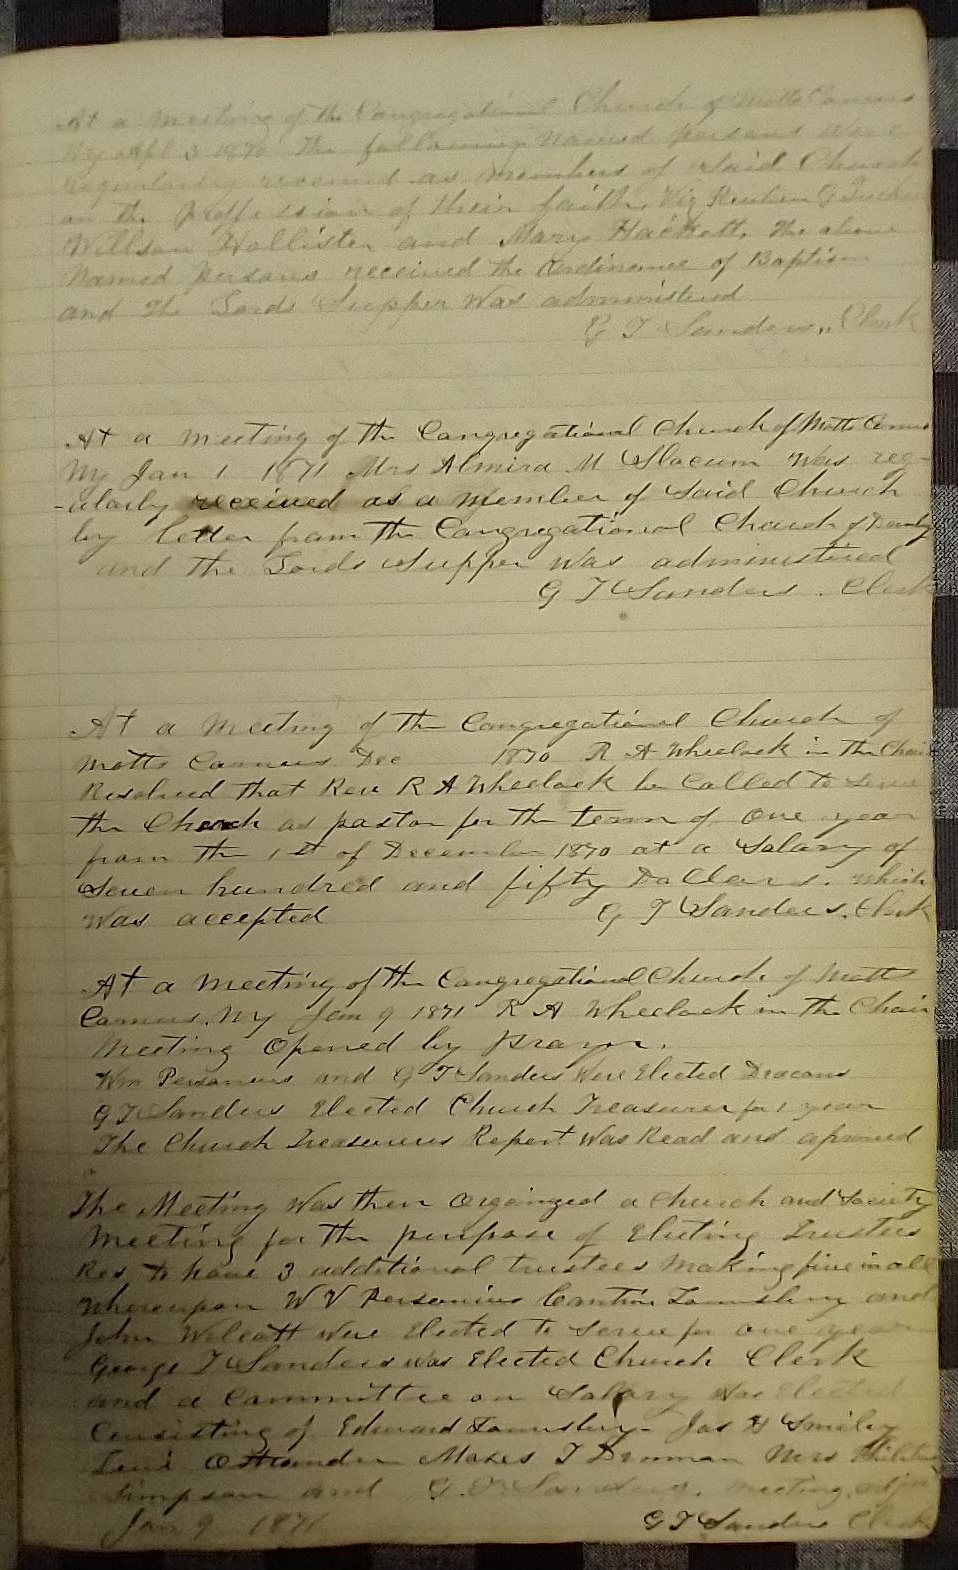 At a Meeting of the Congregational Church of Motts Corners
Ny Apl 3 1870 The following named persons were
regularly received as members of Said Church
on the proffession of their faith, Viz Reuben G
Willson Hollister and Mary Hackett. The above
Named persons received the Ordinance of Baptism
and The Lords Supper Was administered
G T Sanders, Clerk
At a meeting of the Congregational Church of Motts Corners
Ny Jan 1 1871 Mrs Almira M Slocum Was reg-
-ularly received as a Member of Said Church
by letter from the Congregational Church of Danby
and the Lords Supper Was administered
G T Sanders. Clerk
At a Meeting of the Congregational Church of
Motts Corners Dec 1870 R A Wheelock in the Chair
Resolved that Rev R A Wheelock be Called to serve
the Church as pastor for the term of One year
from the 1st of December 1870 at a Salary of
Seven hundred and fifty Dollars. which
Was accepted G T Sanders. Clerk
At a Meeting of the Congregational Church of Motts
Corners. Ny Jan 9 1871 R A Wheelock in the Chair
Meeting Opened by Prayer.
Wm Personius and G T Sanders Were Elected Deacons
G T Sanders Elected Church Treasurer for 1 year
The Church Treasurers Report Was Read and aproved
The Meeting Was then Organized a Church and Society
Meeting for the purpose of Electing Trustees
Res, to have 3 additional trustees Making five in all
Whereupon W V Personius Cantine Lounsbery and
John Wolcott Were Elected to Serve for one year
George T Sanders Was Elected Church Clerk
and a Committee on Salary Was Elected
Consisting of Edward Lounsbery - Jas H Smiley
Levi Ostrander Moses T Denman Mrs
Simpson and G. Sanders. Meeting
Jan 9 1871 G T Sanders Clerk